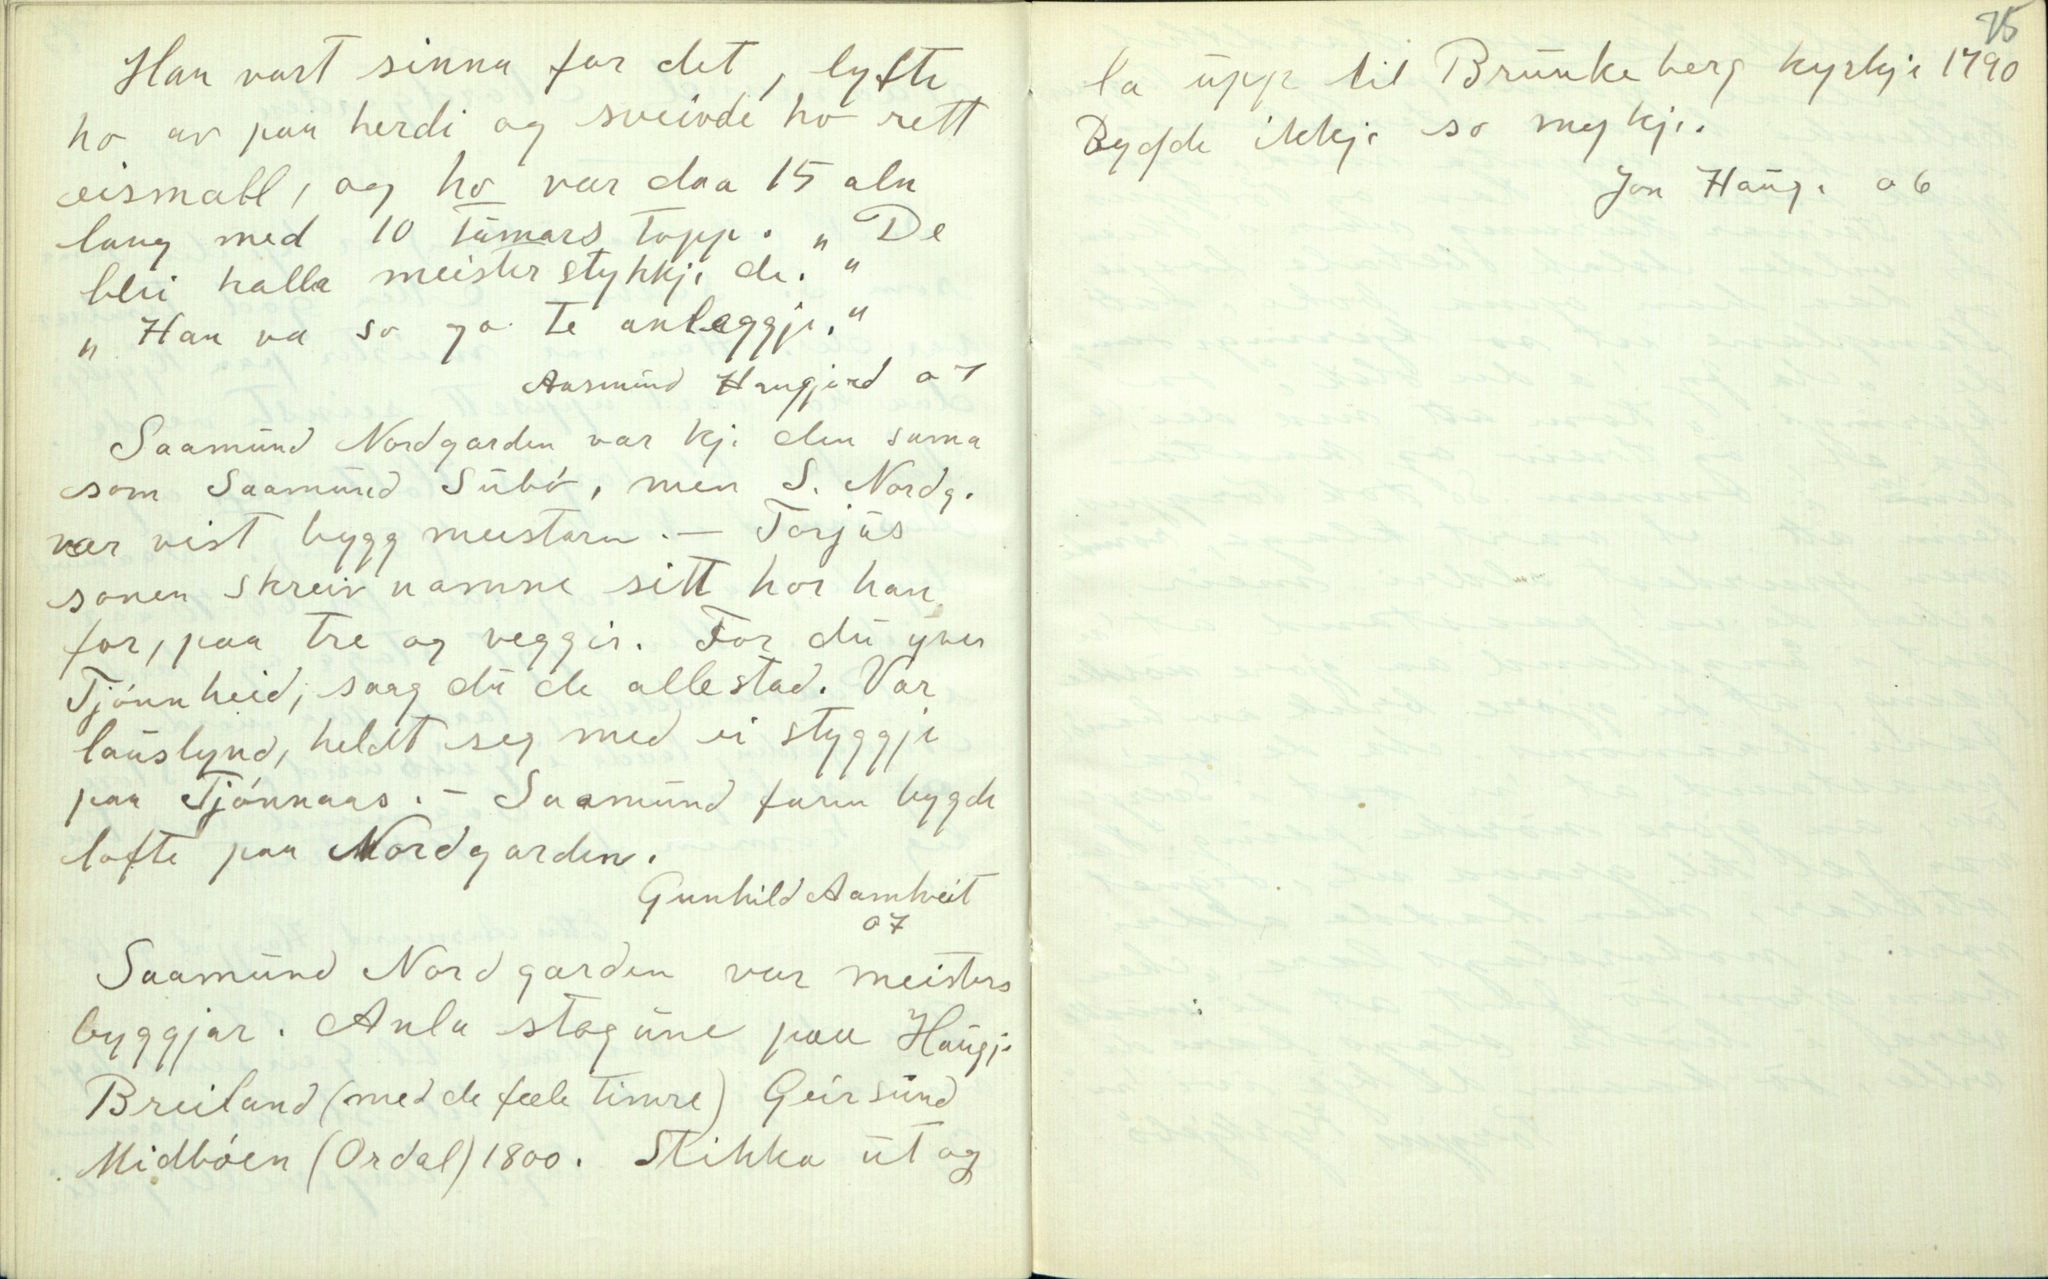 Han vart sinna for det, lyfte
ho av paa herdi og sveivde ho rett
eismall, og ho var daa 15 aln
lang med 10 tümars topp. „De
bli halla meisterstykkji de."
„Han va so go te anleggje."
Aasmünd Haugjord 07
Saamünd Nordgarden var kje den sama
som Saamünd Sübø, men S. Nordg.
var vist byggmeistaren. — Torjüs
sonen skreiv namne sitt hor han
for, paa tre og veggir. For dü yver
Tjónnheid, saag dü de allestad. Var
laüslynd, heldt seg med ei styggje
paa Tjónnaas. — Saamünd faren bygde
lofte paa Nordgarden.
Gunhild Aamtveit
07
Saamünd Nordgarden var meisters
byggjar. Anla stogüne paa Haügje
Breiland (med de fæle timre) Geirsünd
Midbóen (Ordal) 1800. Stikka üt og
75
la üpp til Brünkeberg kyrkje 1790
Bygde ikkje so mykje.
Jon Haüg. 06